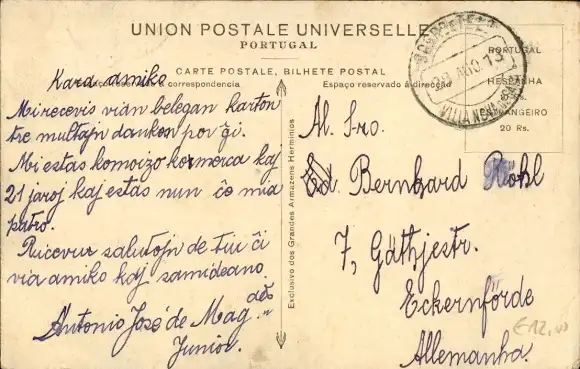 UNION POSTALE UNIVERSELLE
PORTUGAL
CARTE POSTALE, BILHETE POSTAL
Espaço reservado á correspondencia
Espaço reservado á direcção
PORTUGAL
HESPANHA
ESTRANGEIRO
20 Rs.
AGO 13
Kara amiko
Mi recevis vian belegan karton
tre multajn dankon por ĝi.
Mi estas komoizo komerca kaj
21 jaroj kaj estas nun ĉe mia
patro.
Ricevur salutojn de tiu ĉi
via amiko kaj samideano
Antonio José de Mag.
Junior.
Exclusivo dos Grandes Armazens Herminios
Al. Sro.
Ed. Bernhard Röhl
7, Gäthjestr.
Eckernförde
Allemanha.
€12,00